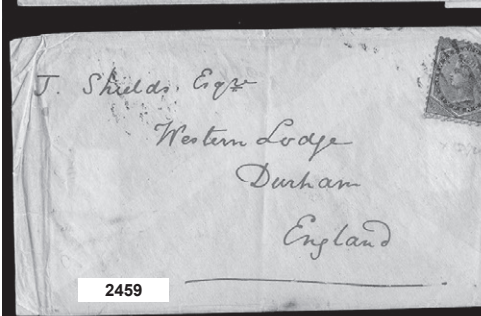 J. Shields. Esqre
Western Lodge
Durham
England
2459